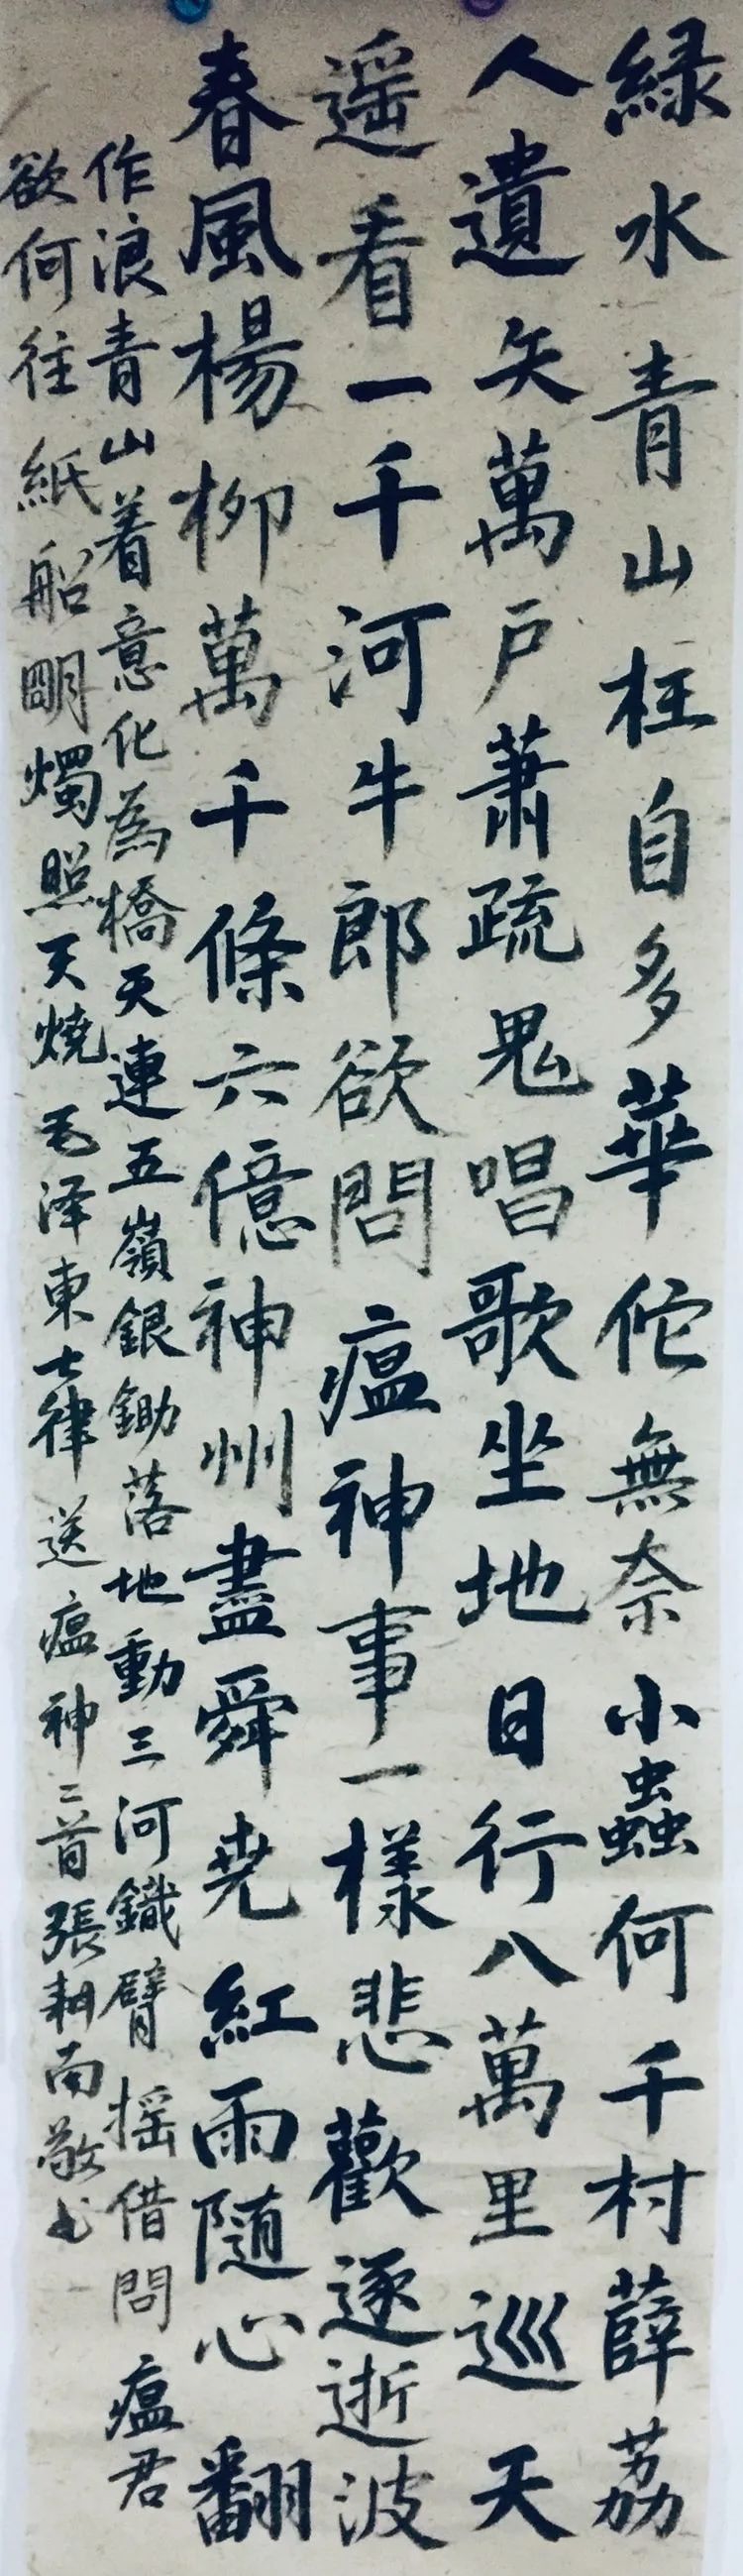 綠水青山枉自多華佗無奈小蟲何千村薜荔
人遺矢萬戶蕭疏鬼唱歌坐地日行八萬里巡天
遥看一千河牛郎欲問瘟神事一樣悲歡逐逝波
春風楊柳萬千條六億神州盡舜尭紅雨隨心翻
作浪青山着意化為橋天連五嶺銀鋤落地動三河鐵臂摇借問瘟君
欲何往紙船明燭照天燒毛泽東七律送瘟神二首張耕南敬书